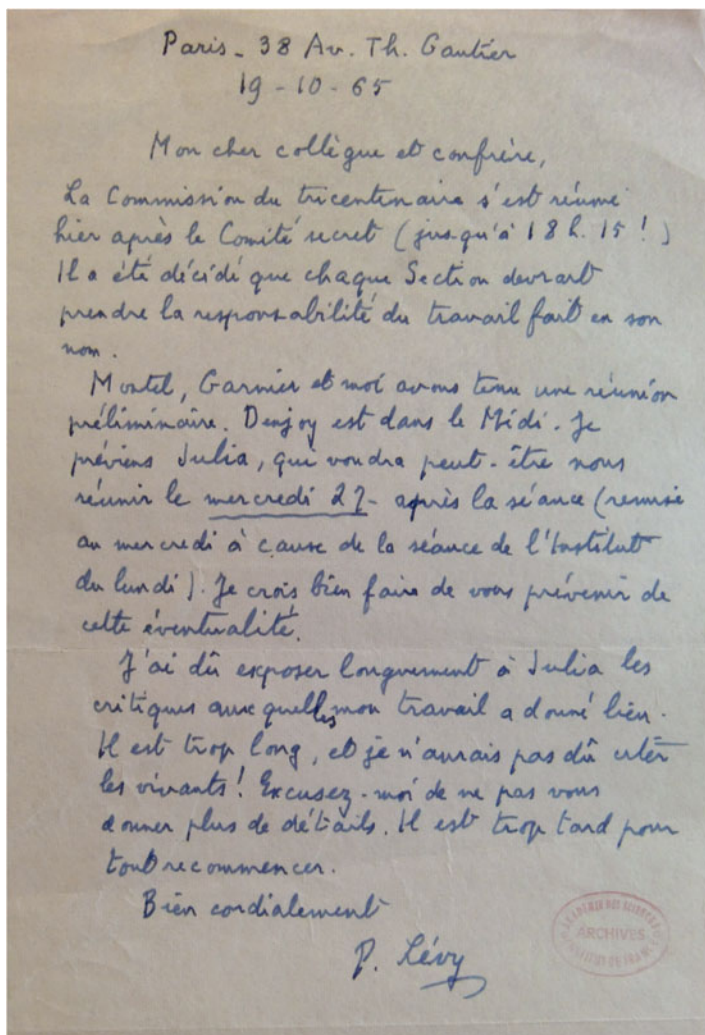 Paris - 38 Av. Th. Gautier
19 - 10 - 65
Mon cher collègue et confrère,
La Commission du tricentenaire s'est réunie
hier après le Comité secret (jusqu'à 18 h. 15 !)
Il a été décidé que chaque Section devrait
prendre la responsabilité du travail fait en son
nom.
Montel, Garnier et moi avons tenu une réunion
préliminaire. Denjoy est dans le Midi. Je
préviens Julia, qui voudra peut-être nous
réunir le mercredi 27 - après la séance (remise
au mercredi à cause de la séance de l'Institut
du lundi). Je crois bien faire de vous prévenir de
cette éventualité.
J'ai dû exposer longuement à Julia les
critiques auxquelles mon travail a donné lieu.
Il est trop long, et je n'aurais pas dû citer
les vivants ! Excusez-moi de ne pas vous
donner plus de détails. Il est trop tard pour
tout recommencer.
Bien cordialement
P. Lévy
ACADÉMIE DES SCIENCES
ARCHIVES
INSTITUT DE FRANCE